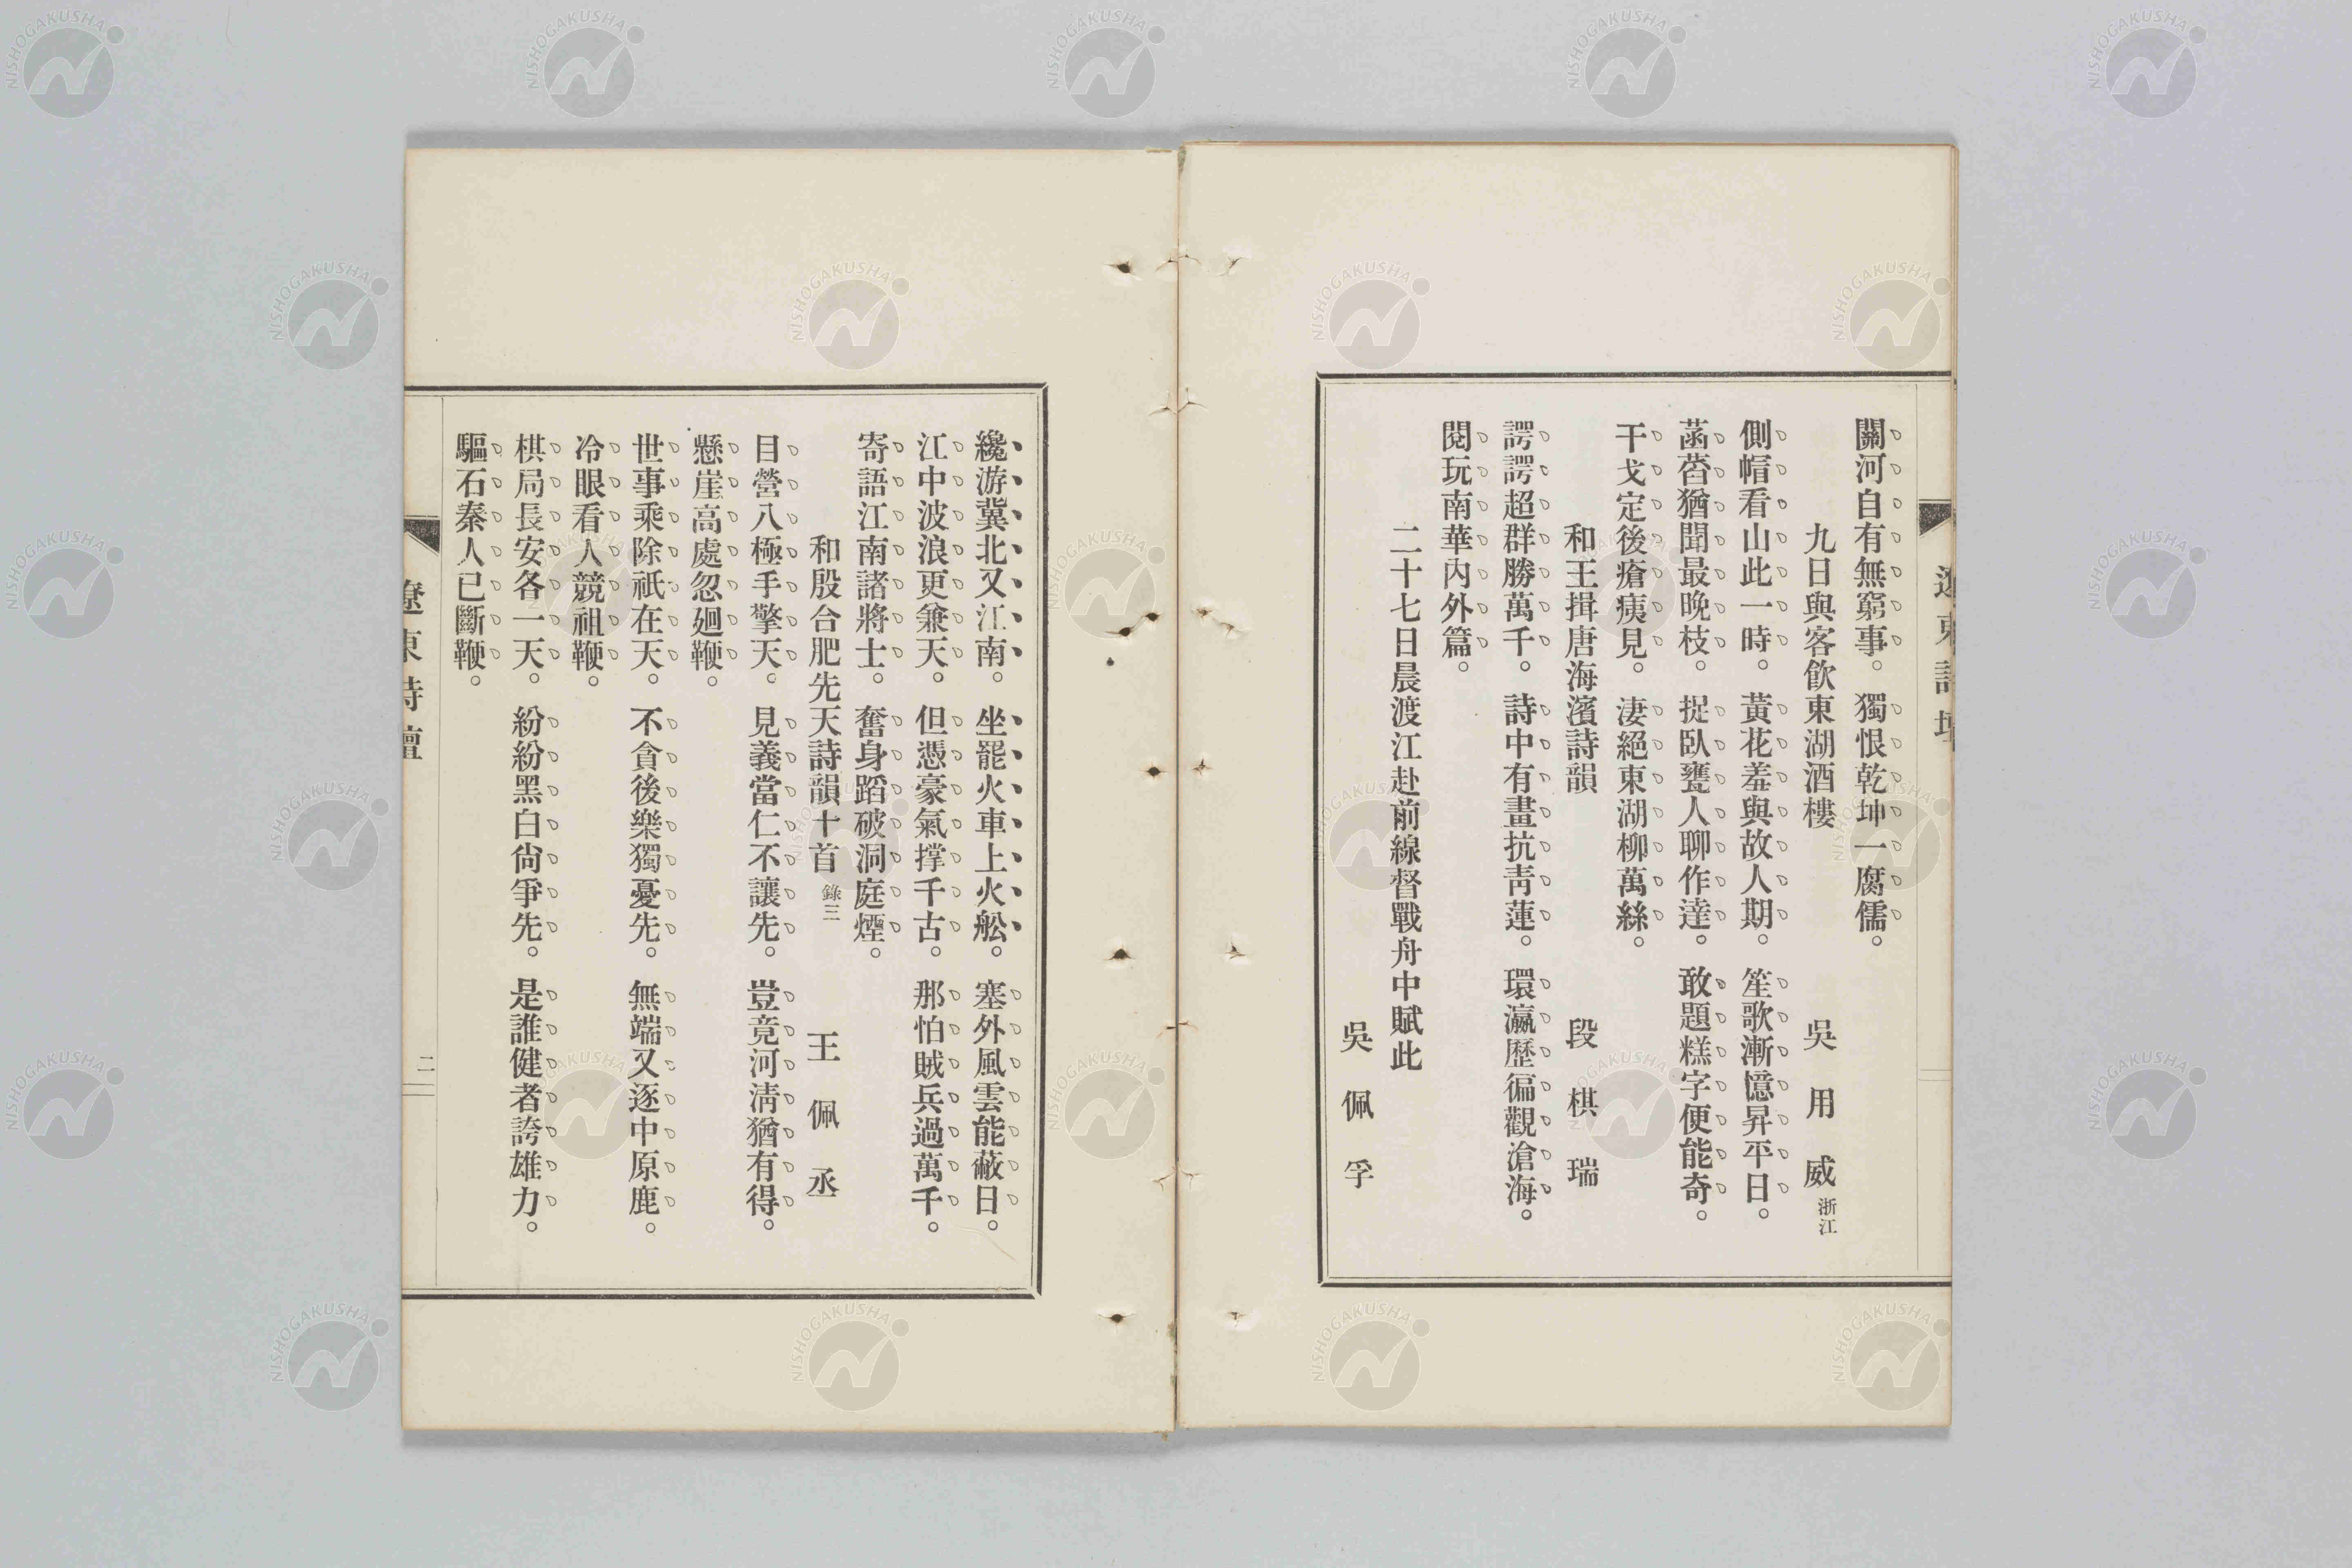 關河自有無窮事。獨恨乾坤一腐儒。
九日與客飮東湖酒樓　吳用威 浙江
側帽看山此一時。黃花羞與故人期。笙歌漸憶昇平日。
菡萏猶聞最晚枝。捉臥甕人聊作達。敢題糕字便能奇。
干戈定後瘡痍見。淒絕東湖柳萬絲。
和王揖唐海濱詩韻　段棋瑞
諤諤超群勝萬千。詩中有畫抗靑蓮。環瀛歷徧觀滄海。
閱玩南華內外篇。
二十七日晨渡江赴前線督戰舟中賦此
吳佩孚
纔游冀北又江南。坐罷火車上火舩。塞外風雲能蔽日。
江中波浪更兼天。但憑豪氣撑千古。那怕賊兵過萬千。
寄語江南諸將士。奮身蹈破洞庭煙。
和殷台肥先天詩韻十首 錄三　王佩丞
目營八極手擎天。見義當仁不讓先。豈竟河淸猶有得。
懸崖高處忽廻鞭。
世事乘除祇在天。不貪後樂獨憂先。無端又逐中原鹿。
冷眼看人競祖鞭。
棋局長安各一天。紛紛黑白尙爭先。是誰健者誇雄力。
驅石秦人已斷鞭。
遼東詩壇
二
NISHOGAKUSHA